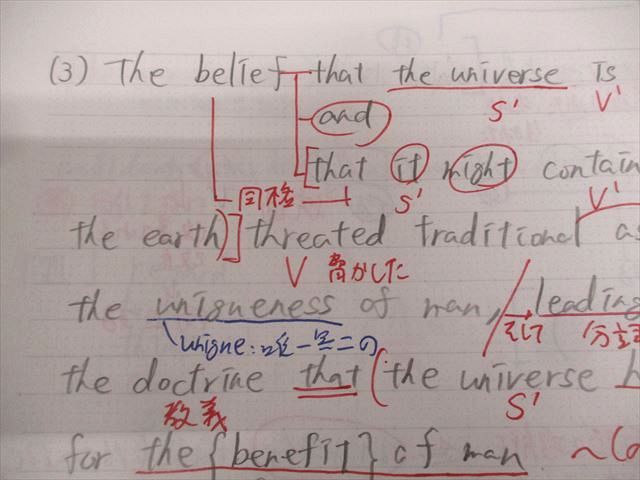 (3) The belief that the universe is
S' V'
and
that it might contain
同格 S' V'
the earth)] threated traditional as
V 脅かした
the uniqueness of man, leading
unique: 唯一無二の そして 分詞
the doctrine that (the universe h
教義 S'
for the {benefit} of man ~(a